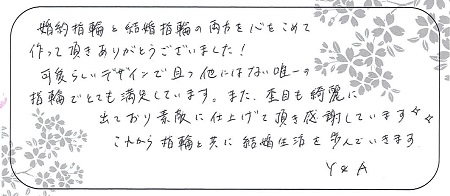 婚約指輪と結婚指輪の両方を心をこめて
作って頂きありがとうございました！
可愛らしいデザインで且つ他にはない唯一の
指輪でとても満足しています。また、杢目も綺麗に
出ており素敵に仕上げて頂き感謝しています
これから指輪と共に結婚生活を歩んでいきます
Y & A